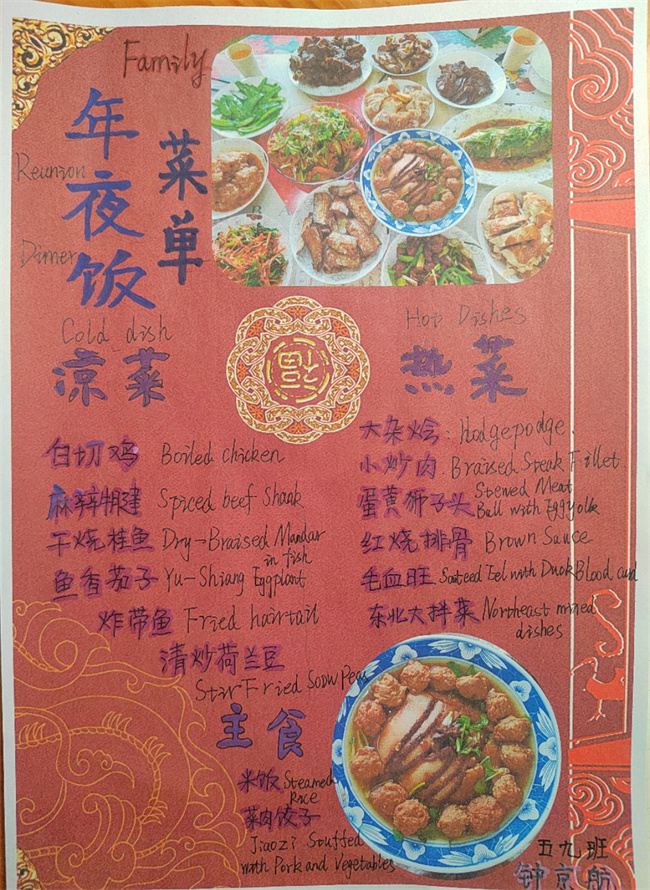 Family
年夜饭
菜单
Reunion
Dinner
Cold dish
凉菜
白切鸡 Boiled chicken
麻辣牛腱 Spiced beef Shank
干烧桂鱼 Dry-Braised Mandar
in fish
鱼香茄子 Yu-Shiang Eggplant
炸带鱼 Fried hairtail
清炒荷兰豆
Stir Fried Snow Peas
福
Hot Dishes
热菜
大杂烩: Hodgepodge.
小炒肉. Braised Steak Fillet.
蛋黄狮子头 Stewed Meat
Ball with Egg Yolk
红烧排骨 Brown Sauce
毛血旺 Sauteed Eel with Duck Blood curd
东北大拌菜 Northeast mixed
dishes
主食
米饭 Steamed
Rice
菜肉饺子
Jiaozi Stuffed
with Pork and Vegetables
五九班